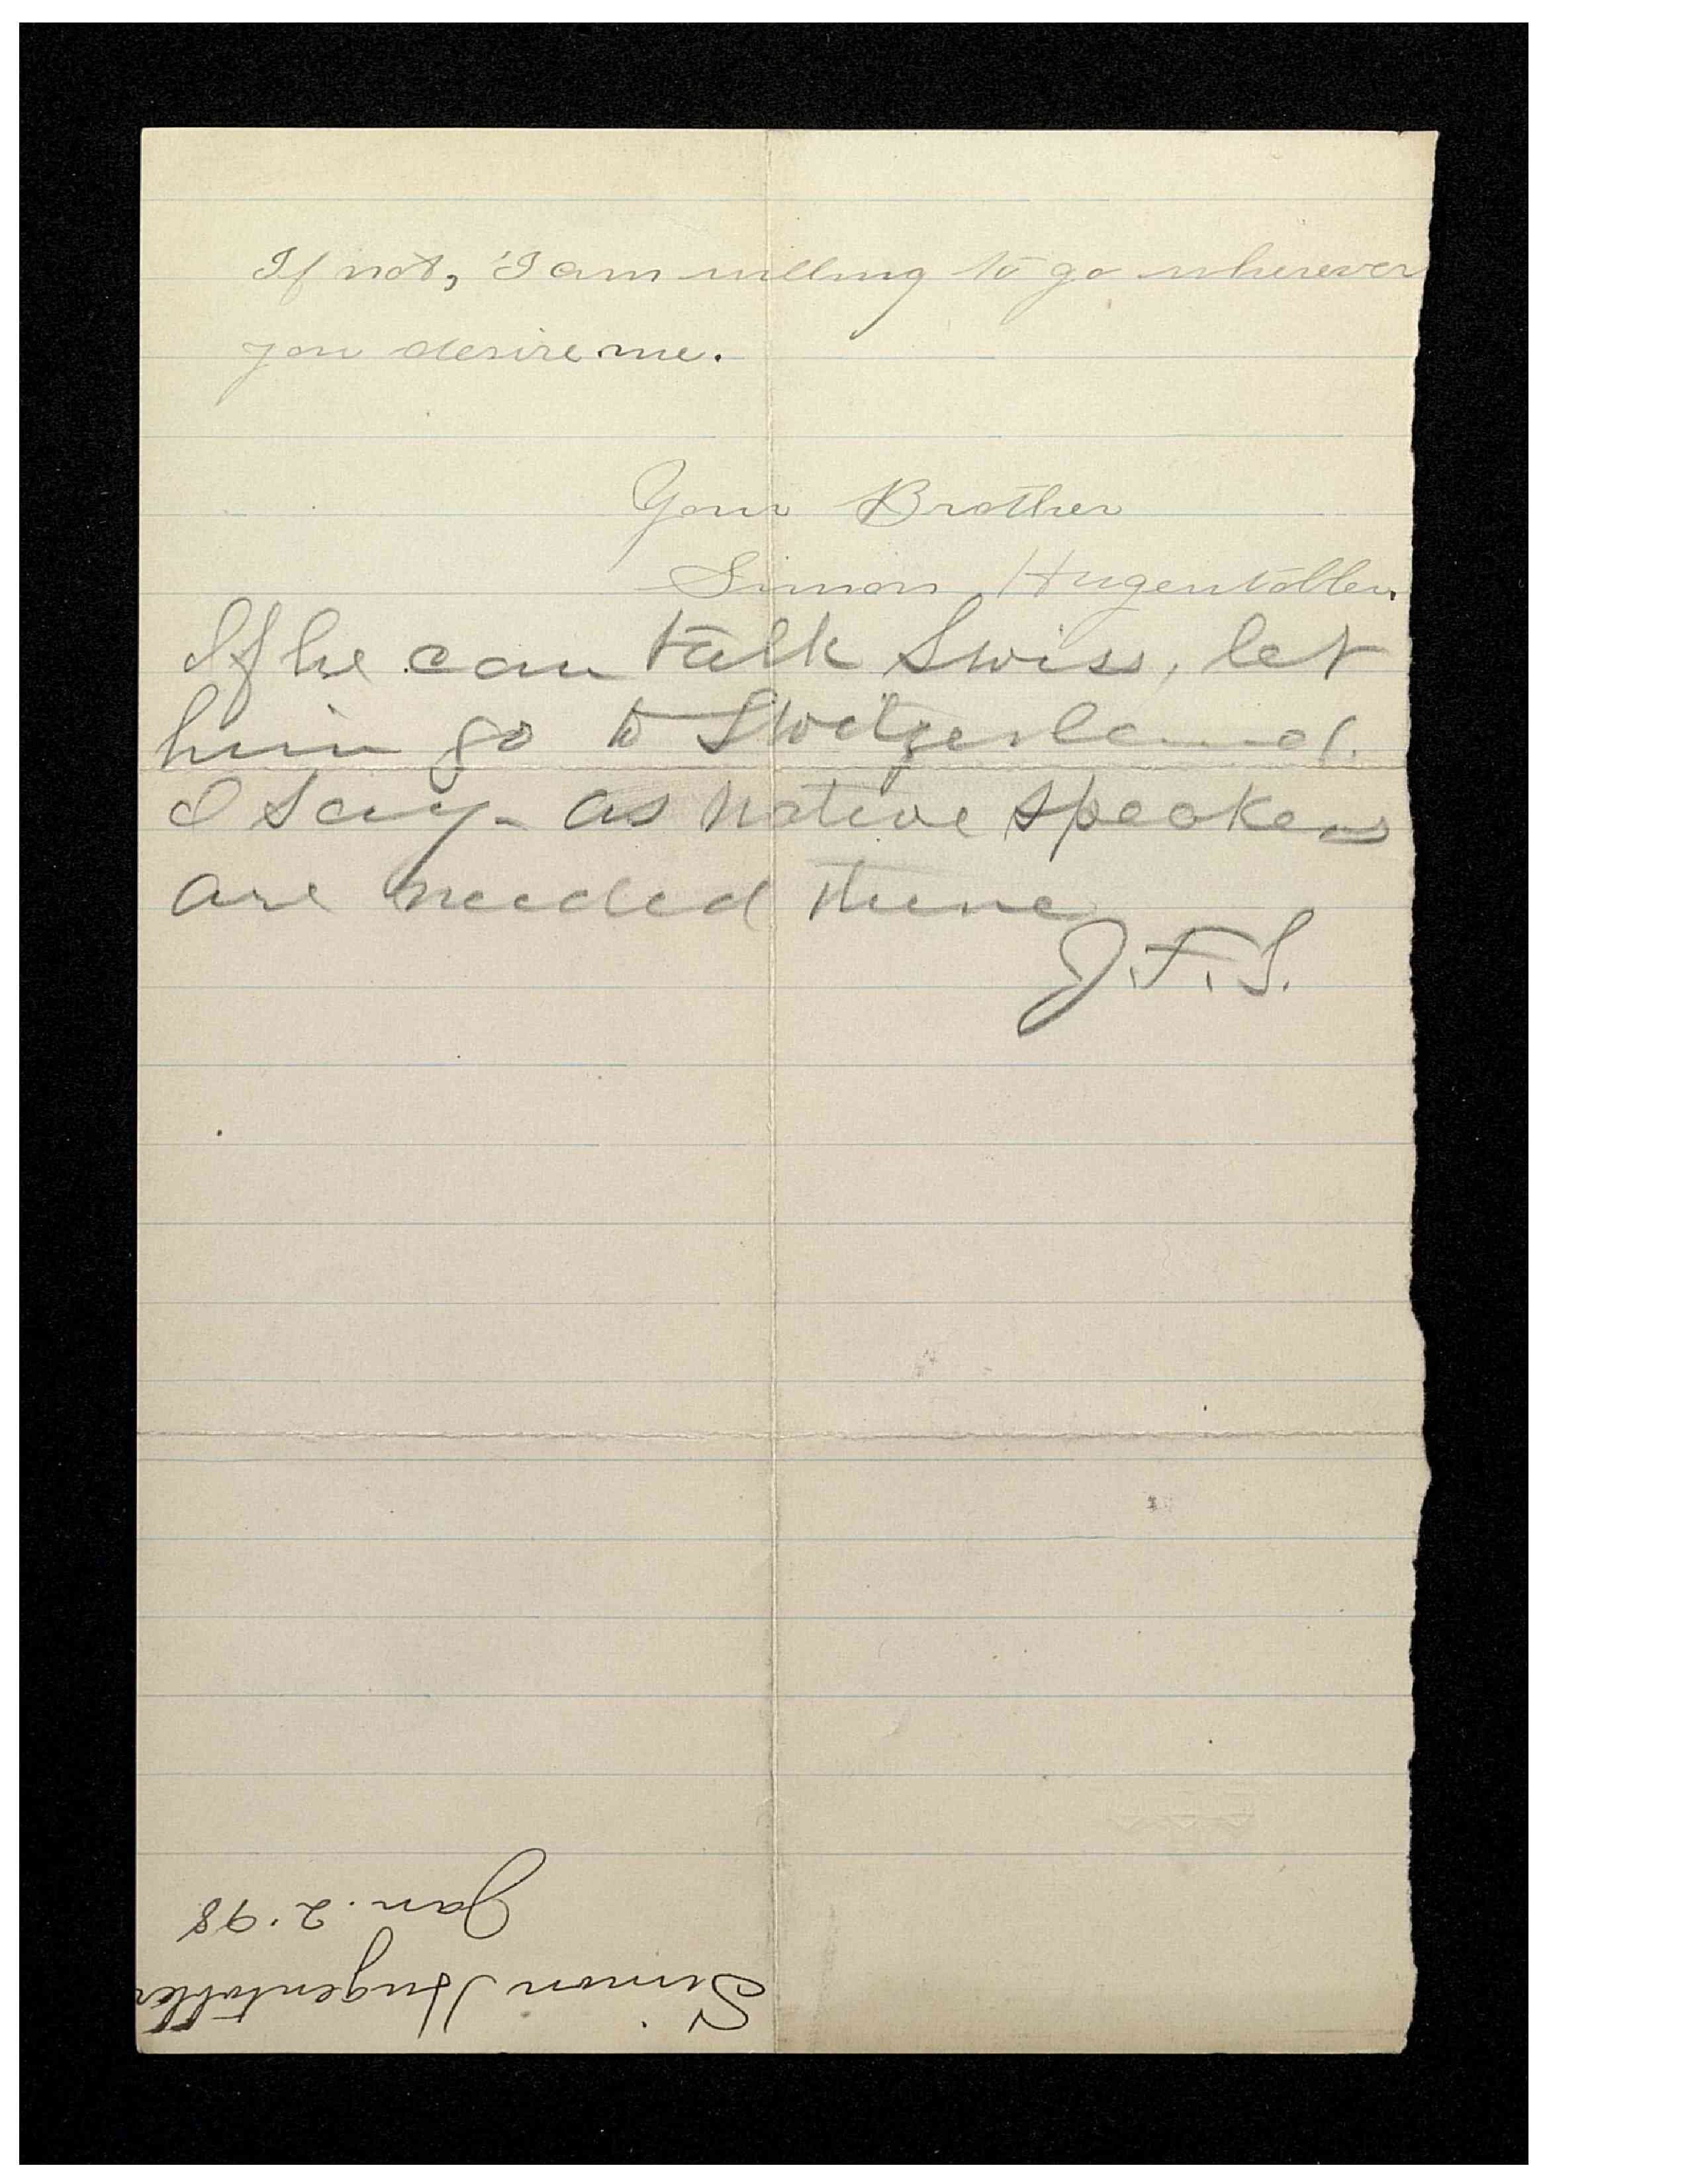 If not, I am willing to go wherever
you desire me.
Your Brother
Simon Hugentobler.
If he can talk Swiss, let
him go to Switzerland.
I say - as native speakers
are needed there
J.F.S.
Simon Hugentobler
Jan. 2. 98